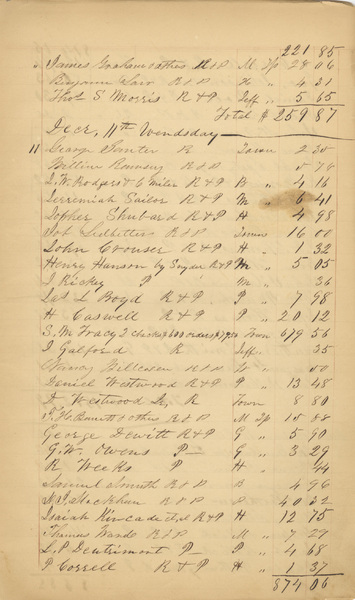 221 85
James Graham & others R & P M. Tp 28 06
Benjamin R & P " 4 31
Thos S Morris R & P Jeff " 5 65
Total $ 259 87
Decr, 11th Wendsday
11 George Hunter R Town 2 30
William Ramsey R & P " 76
J. W. Rodgers & C Miler R & P B " 4 16
Jerremiah Sailor R & P M " 6 41
Topher Shubard R & P H " 4 98
Job Ledbetter R & P Town 16 00
John Crouser R & P H " 1 32
Henry Hanson by Snyder R & P M " 5 05
J Rickey P M " 36
Jas L Boyd R & P P " 7 98
H Caswell R & P P " 20 12
S. M Tracy 2 checks $600 orders $79.56 Town 679 56
J Galford R Jeff. 35
Nancy R & P " 50
Daniel Westwood R & P P " 13 48
D Westwood Sr. R Town 8 80
J. H. Bennett & others R & P M Tp 15 88
George Dewitt R & P G " 5 90
G. W. Owens P G " 3 29
R Weeks P H " 44
Samuel Smith R & P B 4 96
R & P P 40 32
Isaiah Kincade R & P H 12 75
Thomas R & P M " 7 29
L. P Dentrimont P P " 4 68
P Correll R & P H " 1 37
874 06